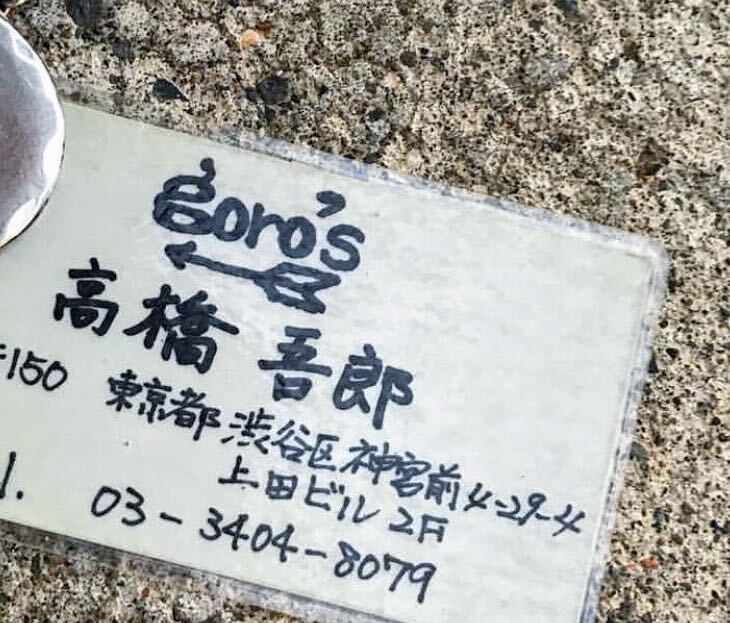 goro's
高橋 吾郎
〒150 東京都 渋谷区神宮前4-29-4
上田ビル 2F
l. 03-3404-8079